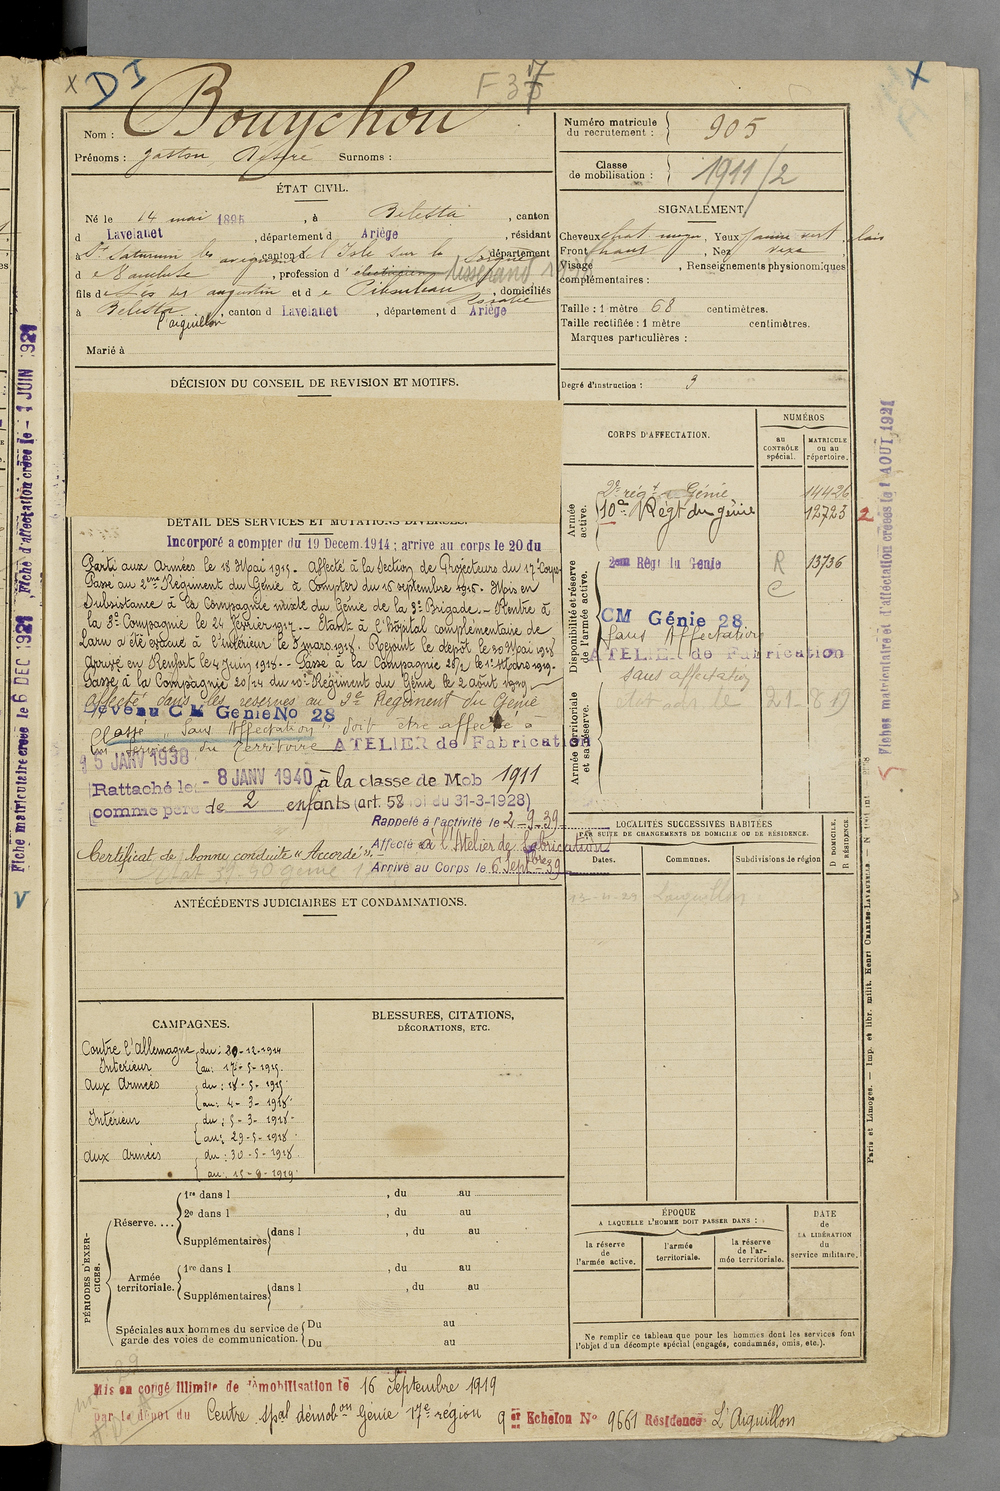 x DI
F 3
x
Nom : Bouychou
Prénoms : Gaston Désiré Surnoms :
Numéro matricule
du recrutement : 905
Classe
de mobilisation : 1911/2
ÉTAT CIVIL.
Né le 14 mai 1895, à Bélesta, canton
d Lavelanet, département d Ariège, résidant
à St Saturnin les avignon canton d l'Isle sur la Sorgue département
d e Vaucluse, profession d' électricien tisserand
fils de augustin et d e Rosalie, domiciliés
à Bélesta, canton d Lavelanet, département d Ariège
l'aiguillon
Marié à
SIGNALEMENT
Cheveux chat moyen, Yeux jaune vert clair
Front haut, Nez vexe
Visage , Renseignements physionomiques
complémentaires :
Taille : 1 mètre 68 centimètres.
Taille rectifiée : 1 mètre centimètres.
Marques particulières :
Degré d'instruction : 3
DÉCISION DU CONSEIL DE REVISION ET MOTIFS.
DÉTAIL DES SERVICES ET MUTATIONS DIVERSES.
Incorporé a compter du 19 Decem. 1914 ; arrive au corps le 20 du
Parti aux Armées le 18 Mai 1915. Affecté à la Section de Projecteurs du 17e Corps
Passé au 2ème Régiment du Génie à Compter du 15 septembre 1915. Mis en
Subsistance à la Compagnie mixte du Génie de la 9e Brigade. Rentre à
la 3e Compagnie le 24 février 1917. Étant à l'hôpital complémentaire de
Laru a été évacué à l'intérieur le 5 mars 1918. Rejoint le dépôt le 30 Mai 1918
Arrivé en Renfort le 4 Juin 1918. Passé à la Compagnie 28/2 le 1er Mars 1919.
Passé à la Compagnie 20/24 du 10e Régiment du Génie le 2 août 1919
affecté dans les réserves au 2e Régiment du Génie
CM Génie No 28
Classé "Sans Affectation" doit être affecté à
un service du Territoire ATELIER de Fabrication
15 JANV 1938
Rattaché le - 8 JANV 1940 à la classe de Mob 1911
comme père de 2 enfants (art. 58 loi du 31-3-1928)
Rappelé à l'activité le 2-9-39
Affecté à l'Atelier de fabrication
Arrivé au Corps le 6 Septbre 39
Certificat de bonne conduite "Accordé"
CORPS D'AFFECTATION.
NUMÉROS
AU CONTRÔLE spécial.
MATRICULE ou au répertoire.
Armée active.
2e régt du Génie 14426
10e Régt du génie 12723 2
Disponibilité et réserve de l'armée active.
2ème Régt du Génie R 13736
CM Génie 28
Sans Affectation
ATELIER de Fabrication
sans affectation
Armée territoriale et sa réserve.
21-8-19
LOCALITÉS SUCCESSIVES HABITÉES
PAR SUITE DE CHANGEMENTS DE DOMICILE OU DE RÉSIDENCE.
Dates. Communes. Subdivisions de région D DOMICILE, R RÉSIDENCE
13-11-29 Laiguillon
ANTÉCÉDENTS JUDICIAIRES ET CONDAMNATIONS.
CAMPAGNES.
Contre l'Allemagne du : 20-12-1914
Intérieur au : 17-5-1915
Aux Armées du : 18-5-1915
au : 4-3-1918
Intérieur du : 5-3-1918
au : 29-5-1918
Aux Armées du : 30-5-1918
au : 15-9-1919
BLESSURES, CITATIONS,
DÉCORATIONS, ETC.
PÉRIODES D'EXERCICES.
Réserve....
1re dans l , du au
2e dans l , du au
Supplémentaires dans l , du au
Armée territoriale.
1re dans l , du au
Supplémentaires dans l , du au
Spéciales aux hommes du service de garde des voies de communication. Du au
Du au
ÉPOQUE
A LAQUELLE L'HOMME DOIT PASSER DANS :
la réserve de l'armée active.
l'armée territoriale.
la réserve de l'armée territoriale.
DATE de LA LIBÉRATION du service militaire.
Ne remplir ce tableau que pour les hommes dont les services font
l'objet d'un décompte spécial (engagés, condamnés, omis, etc.).
Mis en congé illimité de démobilisation le 16 Septembre 1919
par le dépôt du Centre spal démobon Génie 17e région 9 er Echelon No 9661 Résidence L'Aiguillon
Fiche matriculaire créée le 6 DEC 1921 Fiche d'affectation créée le - 1 JUIN 1921
V
Fiches matriculaire et d'affectation créées le 1 AOUT 1921
Paris et Limoges. — Imp. et libr. milit. Henri CHARLES-LAVAUZELLE.